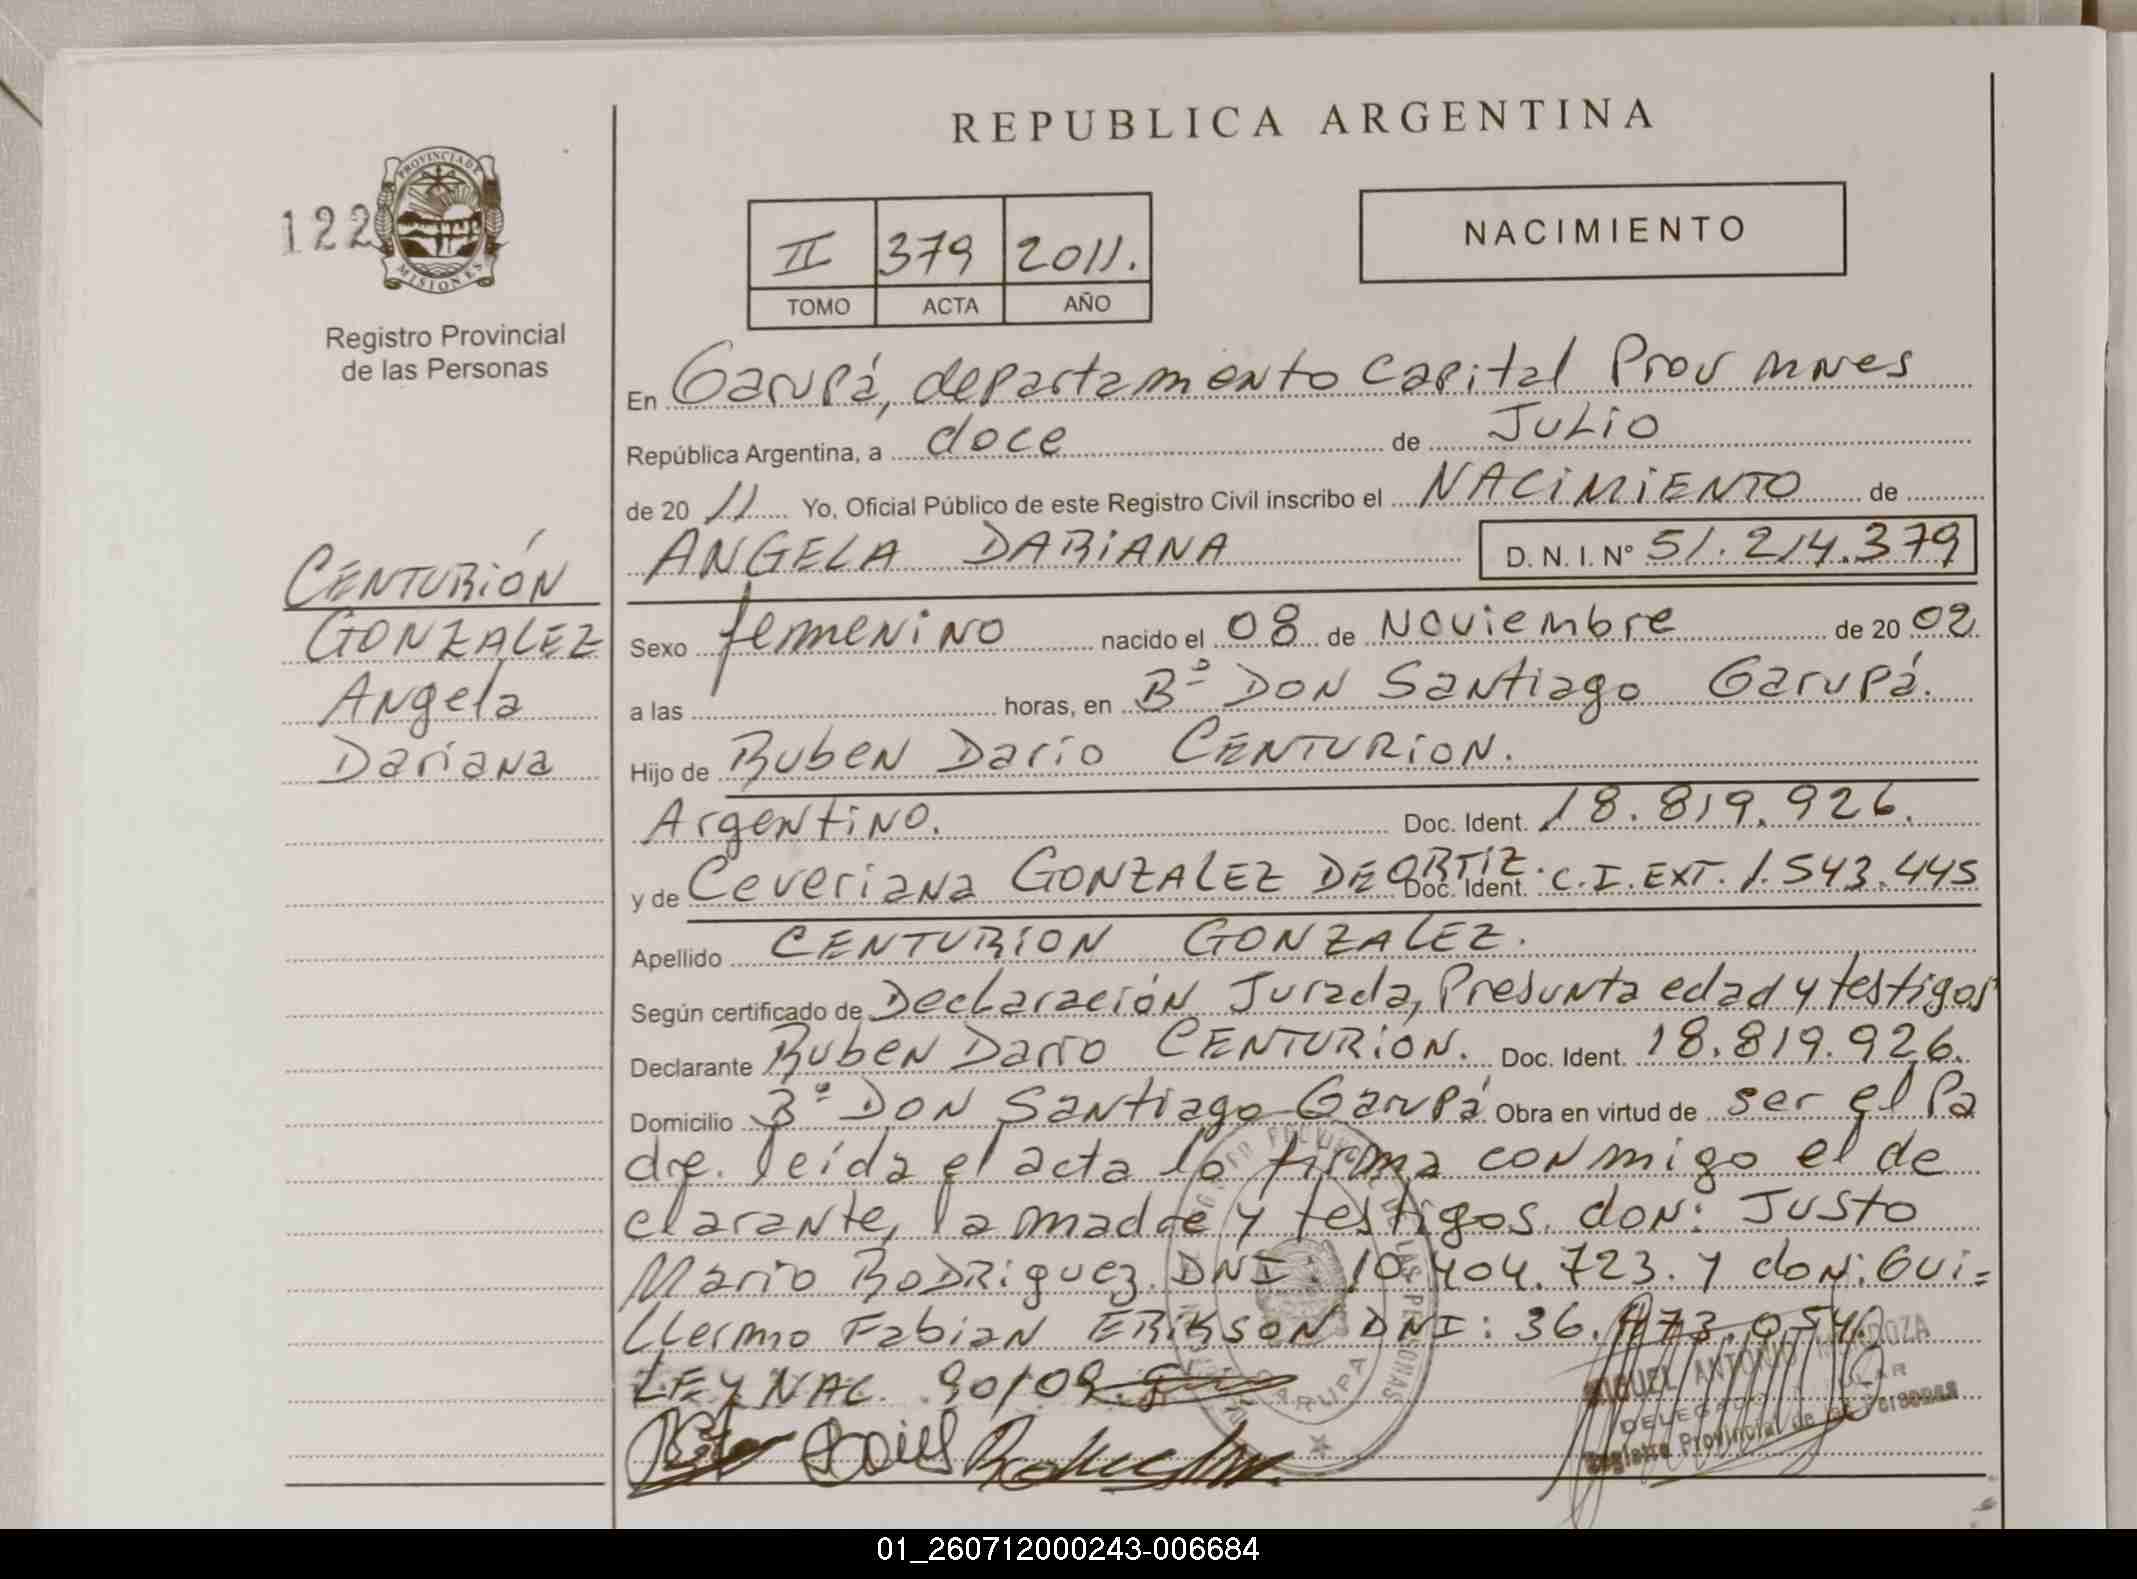 REPUBLICA ARGENTINA
122
PROVINCIA DE
MISIONES
Registro Provincial
de las Personas
II 379 2011.
TOMO ACTA AÑO
NACIMIENTO
En Garupá, departamento Capital Prov Mnes
República Argentina, a doce de Julio
de 20 11 Yo, Oficial Público de este Registro Civil inscribo el NACIMIENTO de
ANGELA DARIANA D. N. I. N° 51.214.379
CENTURIÓN
GONZALEZ
Angela
Dariana
Sexo femenino nacido el 08 de Noviembre de 20 02
a las horas, en Bº DON Santiago Garupá.
Hijo de Ruben Dario CENTURION.
Argentino. Doc. Ident. 18.819.926.
y de Ceveriana GONZALEZ DE ORTIZ. Doc. Ident. C.I. EXT. 1.543.445
Apellido CENTURION GONZALEZ.
Según certificado de Declaración Jurada, Presunta edad y testigos
Declarante Ruben Dario CENTURION. Doc. Ident. 18.819.926.
Domicilio Bº DON Santiago Garupá Obra en virtud de ser el Pa
dre. leída el acta la firma conmigo el de
clarante, la madre y testigos. don: Justo
Mario RODRiguez. DNI: 10.404.723. y don: Gui=
llermo Fabian ERIKSON DNI: 36.473.054.
LEY NAC. 90/09.
GARUPA
MIGUEL ANTONIO MENDOZA
DELEGADO TITULAR
Registro Provincial de las Personas
01_260712000243-006684